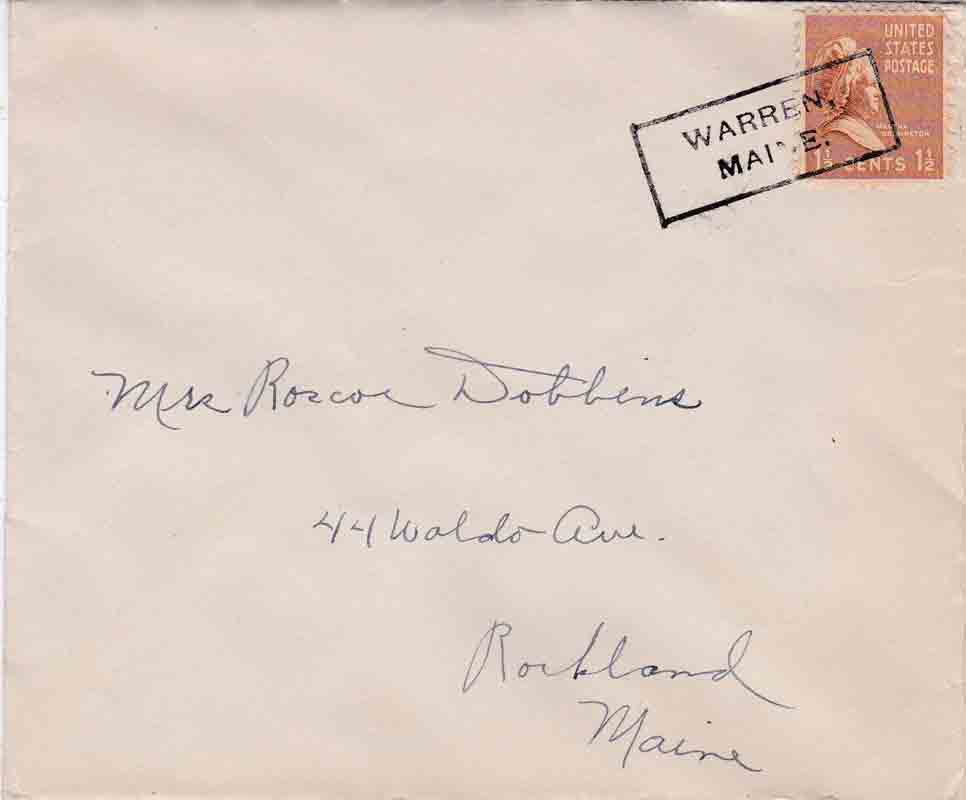 UNITED
STATES
POSTAGE
MARTHA
WASHINGTON
1 1/2 CENTS 1 1/2
WARREN,
MAINE.
Mrs Roscoe Dobbins
44 Waldo Ave.
Rockland
Maine